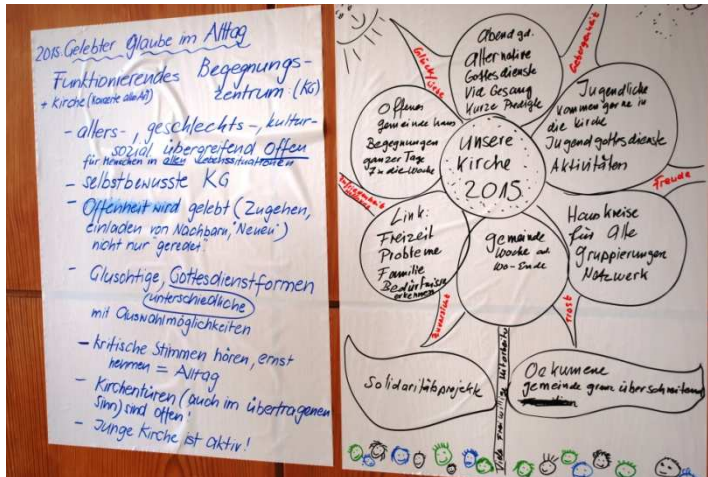 2015. Gelebter Glaube im Alltag
Funktionierendes Begegnungs-
+ Kirche (Konzerte aller Art) zentrum (KG)
- alters-, geschlechts-, kultur-
sozial übergreifend offen
für Menschen in allen Lebenssituationen
- selbstbewusste KG
- Offenheit wird gelebt (Zugehen,
einladen von Nachbarn, "Neuen")
nicht nur geredet
- Gluschtige, Gottesdienstformen
(unterschiedliche
mit Auswahlmöglichkeiten
- kritische Stimmen hören, ernst
nehmen = Alltag
- Kirchentüren (auch im übertragenen
Sinn) sind offen!
- Junge Kirche ist aktiv!
unsere
kirche
2015.
Abendgd.
alternative
Gottesdienste
Viel Gesang
Kurze Predigte
Jugendliche
kommen gerne in
die kirche
Jugendgottsdienste
Aktivitäten
Hauskreise
für Alle
Gruppierungen
Netzwerk
gemeinde
Woche
Wo-Ende
Link:
Freizeit
Probleme
Familie
Bedürfnisse
erkennen
Offenes
gemeinde haus
Begegnungen
ganzer Tage
die Woche
Glück/Liebe
Geborgenheit
Freude
Trost
Zuversicht
Solidaritätprojekte
Oekumene
gemeinde grenz überschreitend
Viele Freiwillige Mitarbeiter